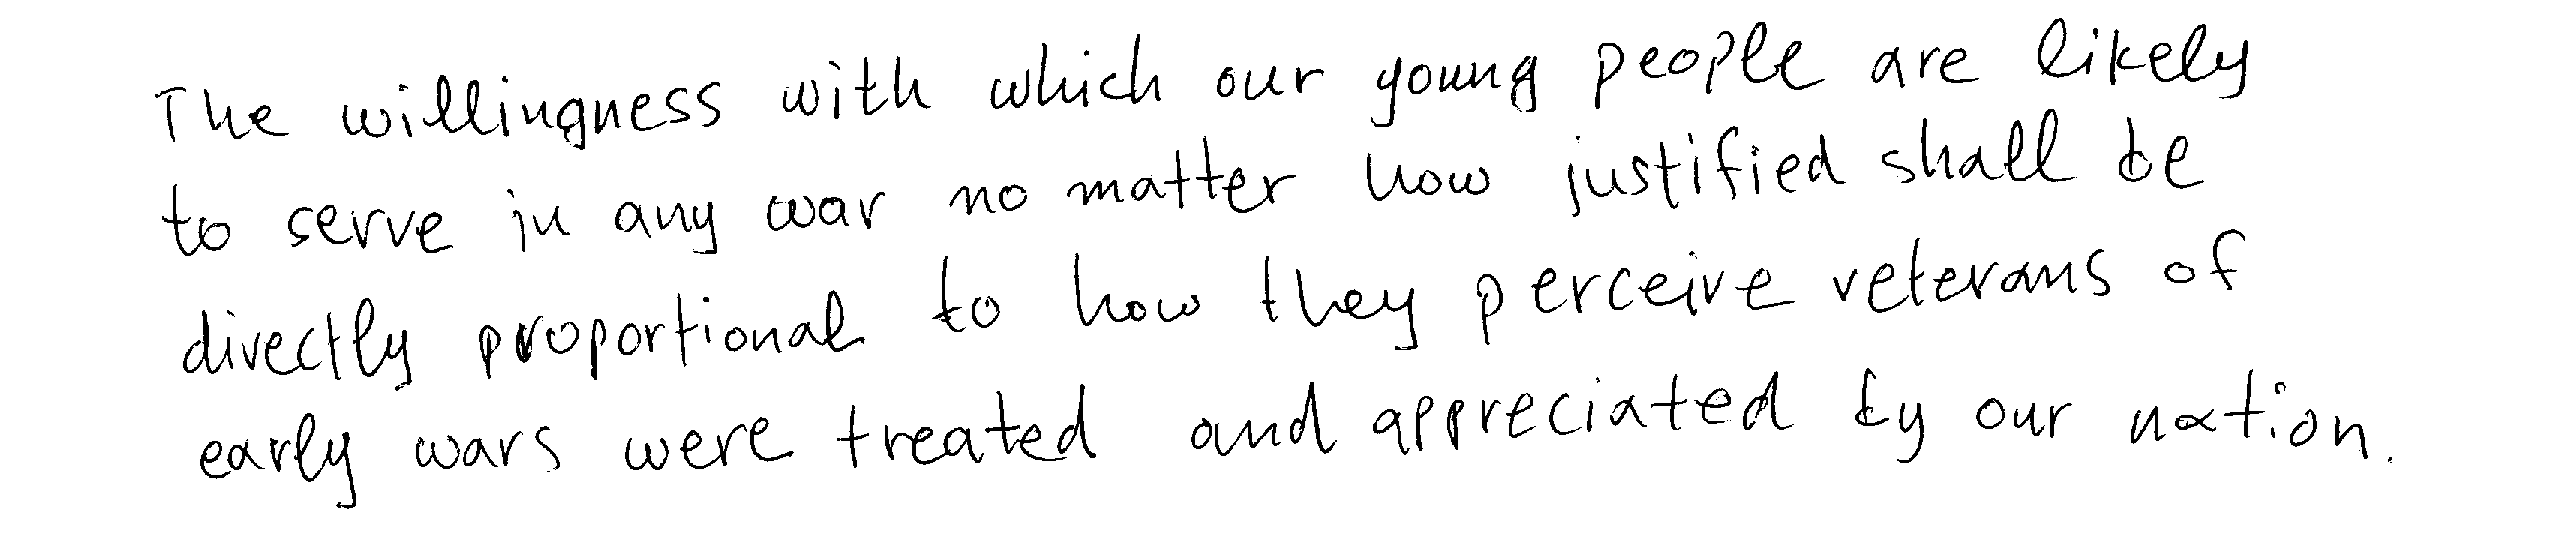 The willingness with which our young people are likely
to serve in any war no matter how justified shall be
directly proportional to how they perceive veterans of
early wars were treated and appreciated by our nation.